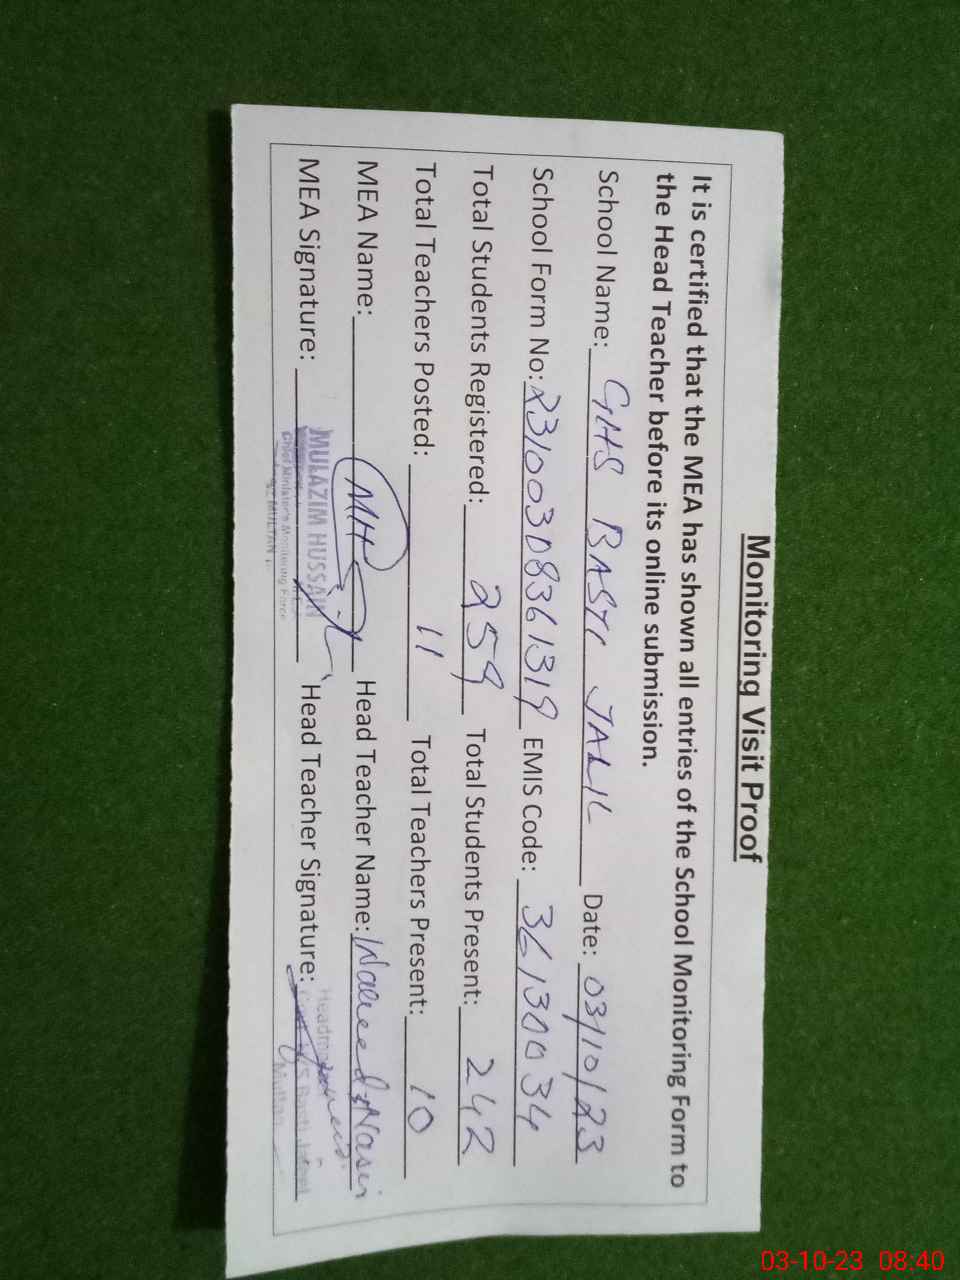 Monitoring Visit Proof
It is certified that the MEA has shown all entries of the School Monitoring Form to
the Head Teacher before its online submission.
School Name: GHS BASTI JALIL Date: 03/10/23
School Form No: 23100308361319 EMIS Code: 36130034
Total Students Registered: 259 Total Students Present: 242
Total Teachers Posted: 11 Total Teachers Present: 10
MEA Name: Head Teacher Name: Waheed Nasir
MEA Signature: Head Teacher Signature:
MULAZIM HUSSAIN
Chief Minister's Monitoring Force
MULTAN
03-10-23 08:40